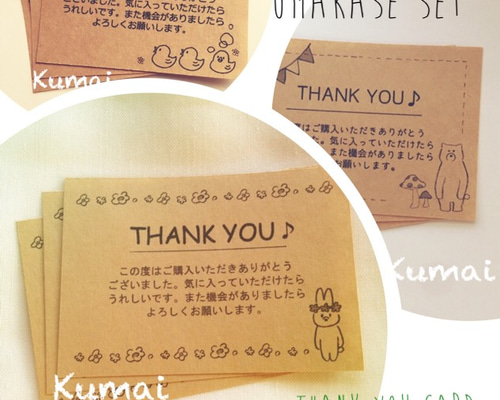 OMAKASE SET
ございました。気に入っていただけたら
うれしいです。また機会がありましたら
よろしくお願いします。
Kumai
THANK YOU♪
度はご購入いただきありがとう
した。気に入っていただけたら
。また機会がありましたら
お願いします。
Kumai
THANK YOU♪
この度はご購入いただきありがとう
ございました。気に入っていただけたら
うれしいです。また機会がありましたら
よろしくお願いします。
Kumai
THANK YOU CARD